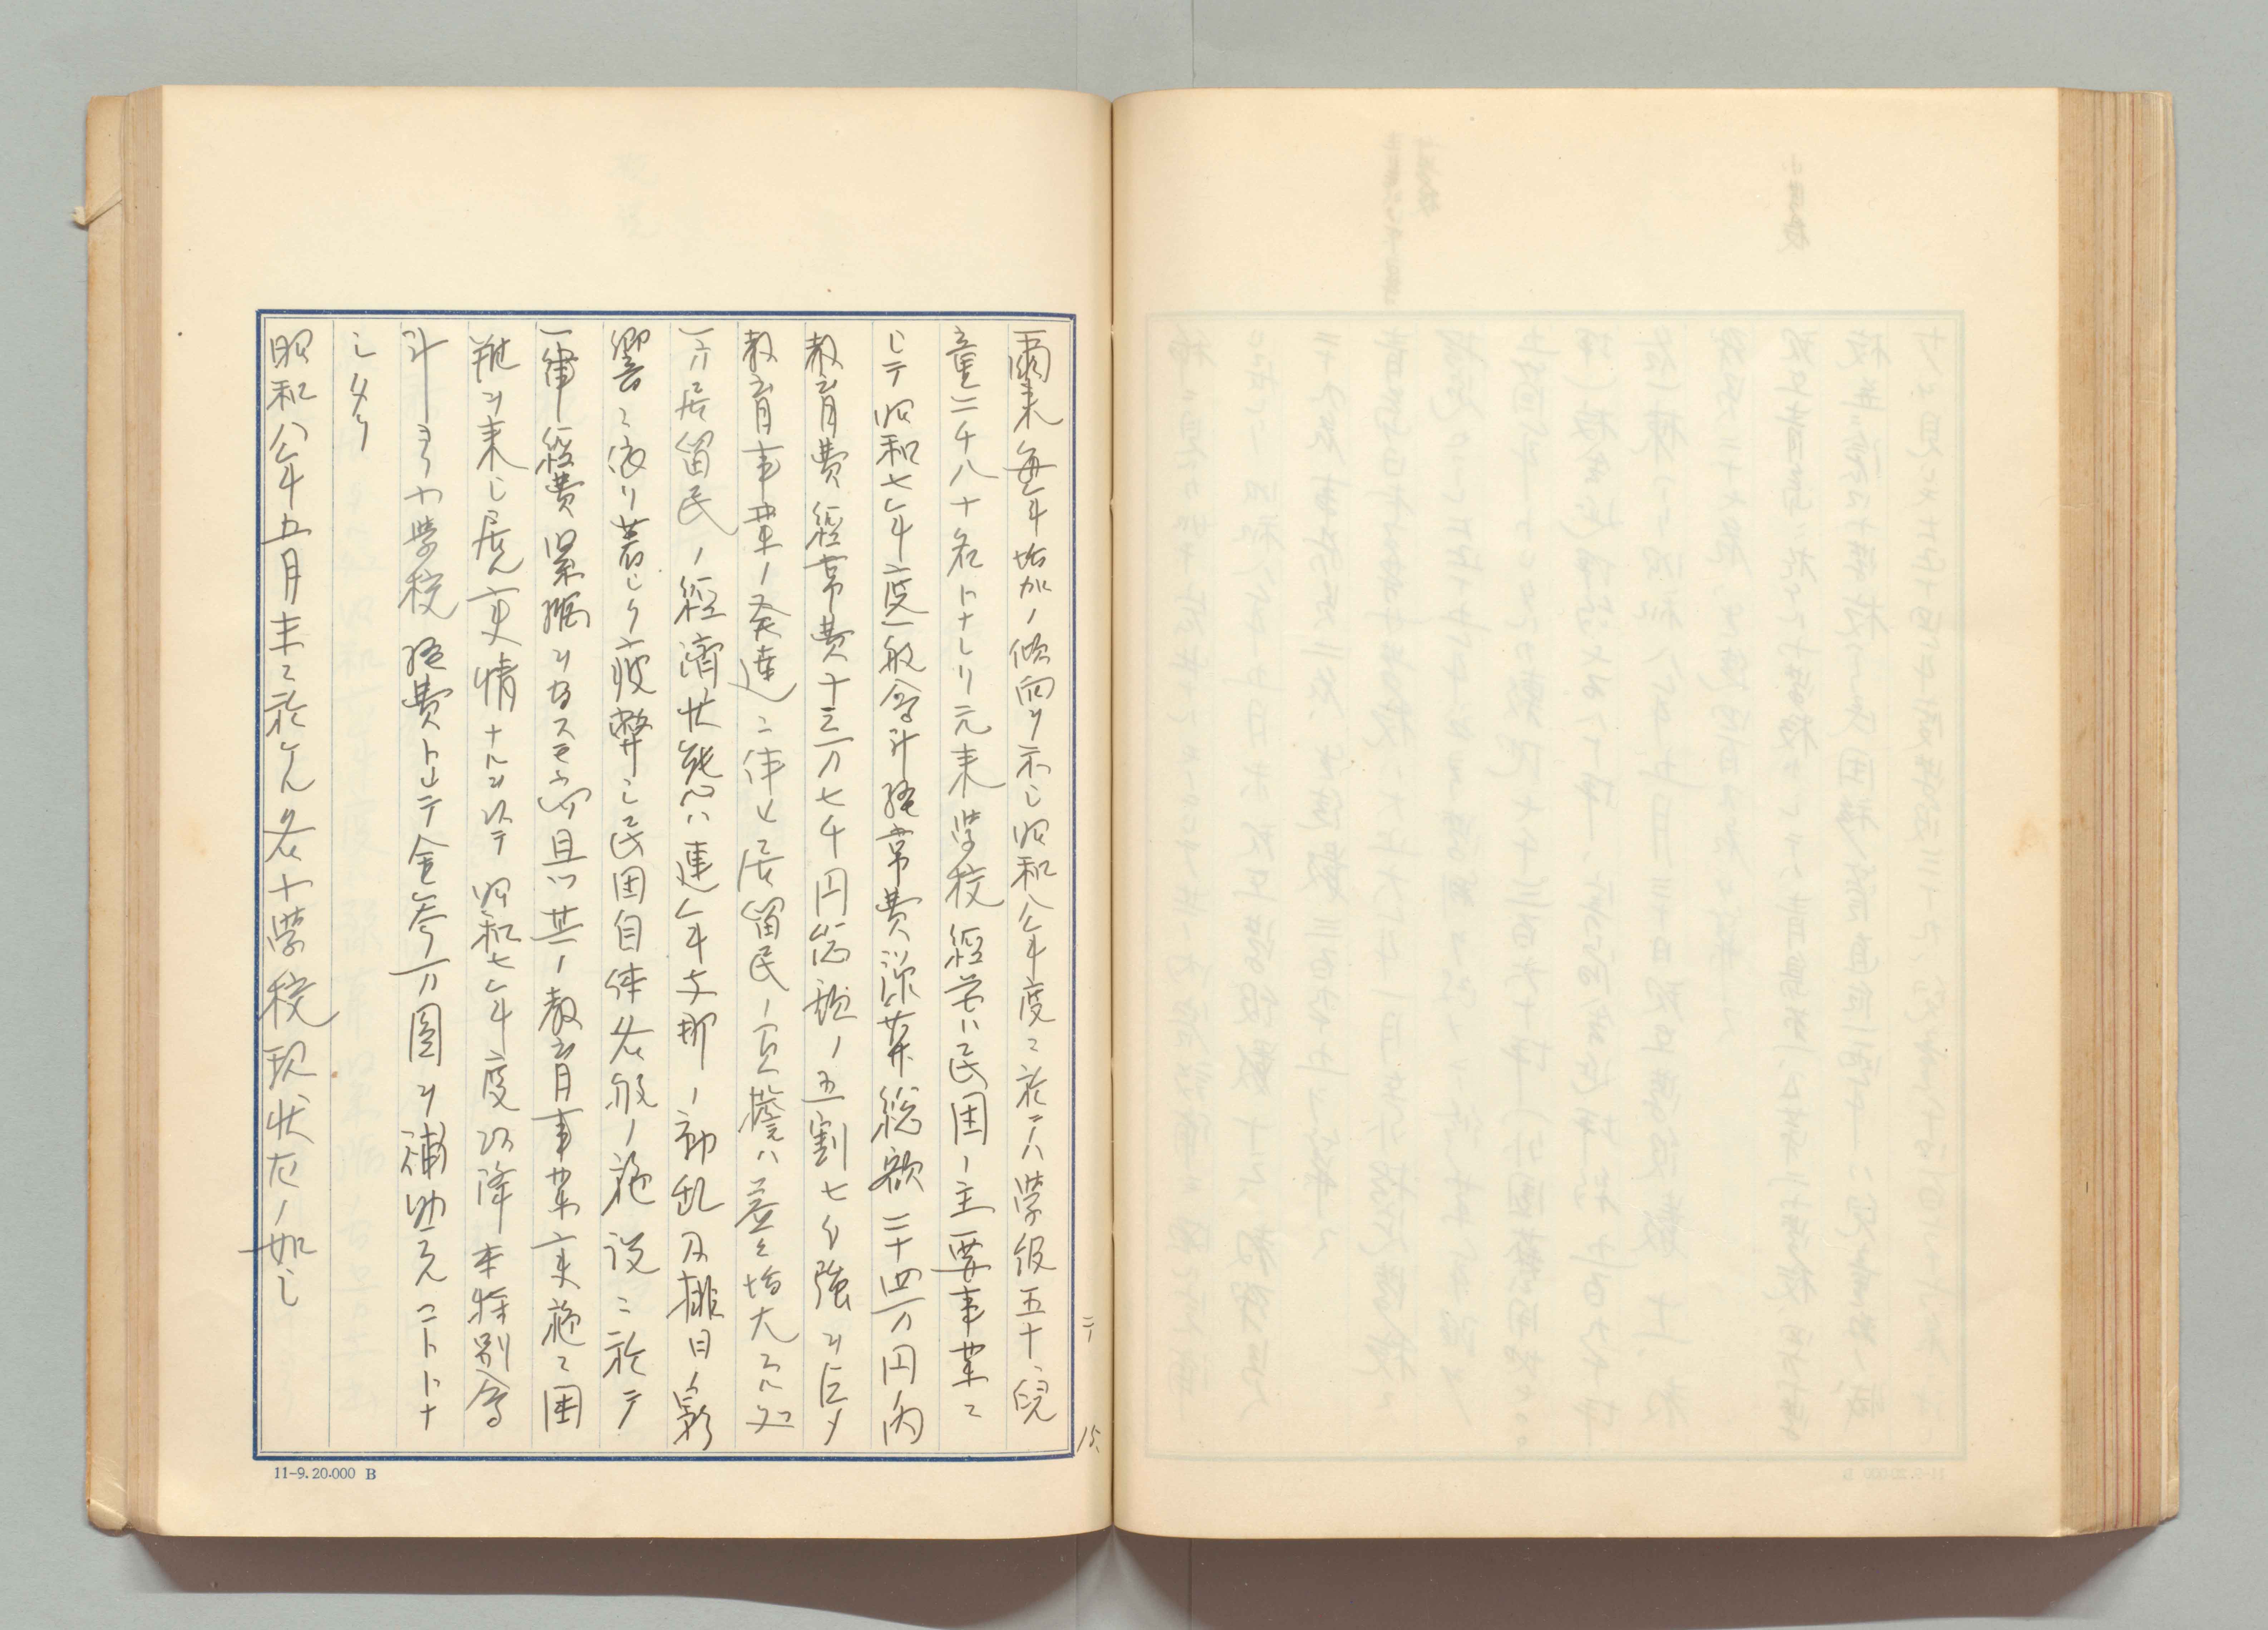 爾来毎年増加ノ傾向ヲ示シ昭和八年度ニ於テハ学級五十、児
童二千八十名トナレリ元来学校経営ハ民団ノ主要事業ニ
シテ昭和七年度一般会計経常費予算総額二十四万円内
教育費経常費十三万七千円総額ノ五割七分強ヲ占メ
教育事業ノ発達ニ伴ヒ居留民ノ負担ハ益々増大スル処
一方居留民ノ経済状態ハ連年支那ノ動乱及排日ノ影
響ニ依リ著シク疲弊シ民団自体各般ノ施設ニ於テ
一律経費緊縮ヲ為スモ尚且ツ其ノ教育事業実施ニ困
難ヲ来シ居ル実情ナルヲ以テ昭和七年度以降本特別会
計ヨリ小学校経費トシテ金参万圓ヲ補助スルコトトナ
シタリ
昭和八年五月末ニ於ケル各小学校現状左ノ如シ
テ
15
11-9.20.000 B